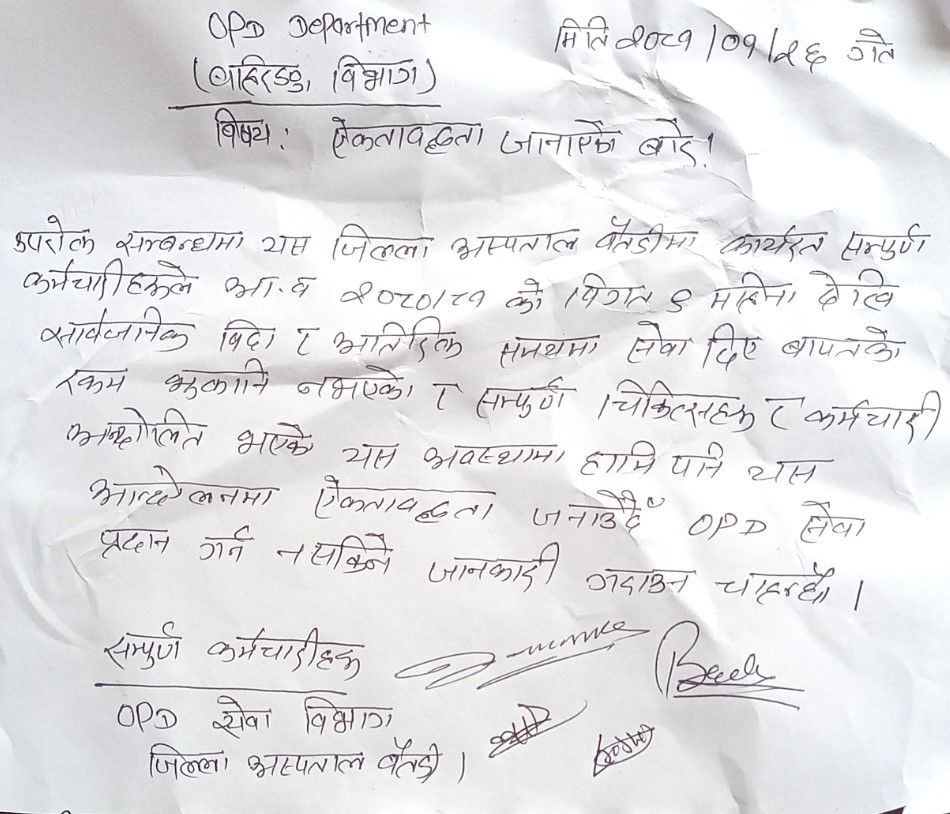 OPD Department
मिति २०८१/०१/२६ गते
(बहिरङ्ग, विभाग)
बिषय: ऐकतावद्धता जानाएको बारे!
उपरोक्त सम्बन्धमा यस जिल्ला अस्पताल बैतडीमा कार्यरत सम्पुर्ण
कर्मचारीहरूले आ.व २०८०/८१ को विगत ९ महिना देखि
सार्वजानिक विदा र अतिरिक्त समयमा सेवा दिए बापतको
रकम भुक्तानि नभएको र सम्पुर्ण चिकित्सहरू र कर्मचारी
आन्दोलित भएको यस अवस्थामा हामि पनि यस
आन्दोलनमा ऐकतावद्धता जनाउदै OPD सेवा
प्रदान गर्न नसकिने जानकारी गराउन चाहन्छौ।
सम्पुर्ण कर्मचारीहरू
OPD सेवा विभाग
जिल्ला अस्पताल बैतडी।